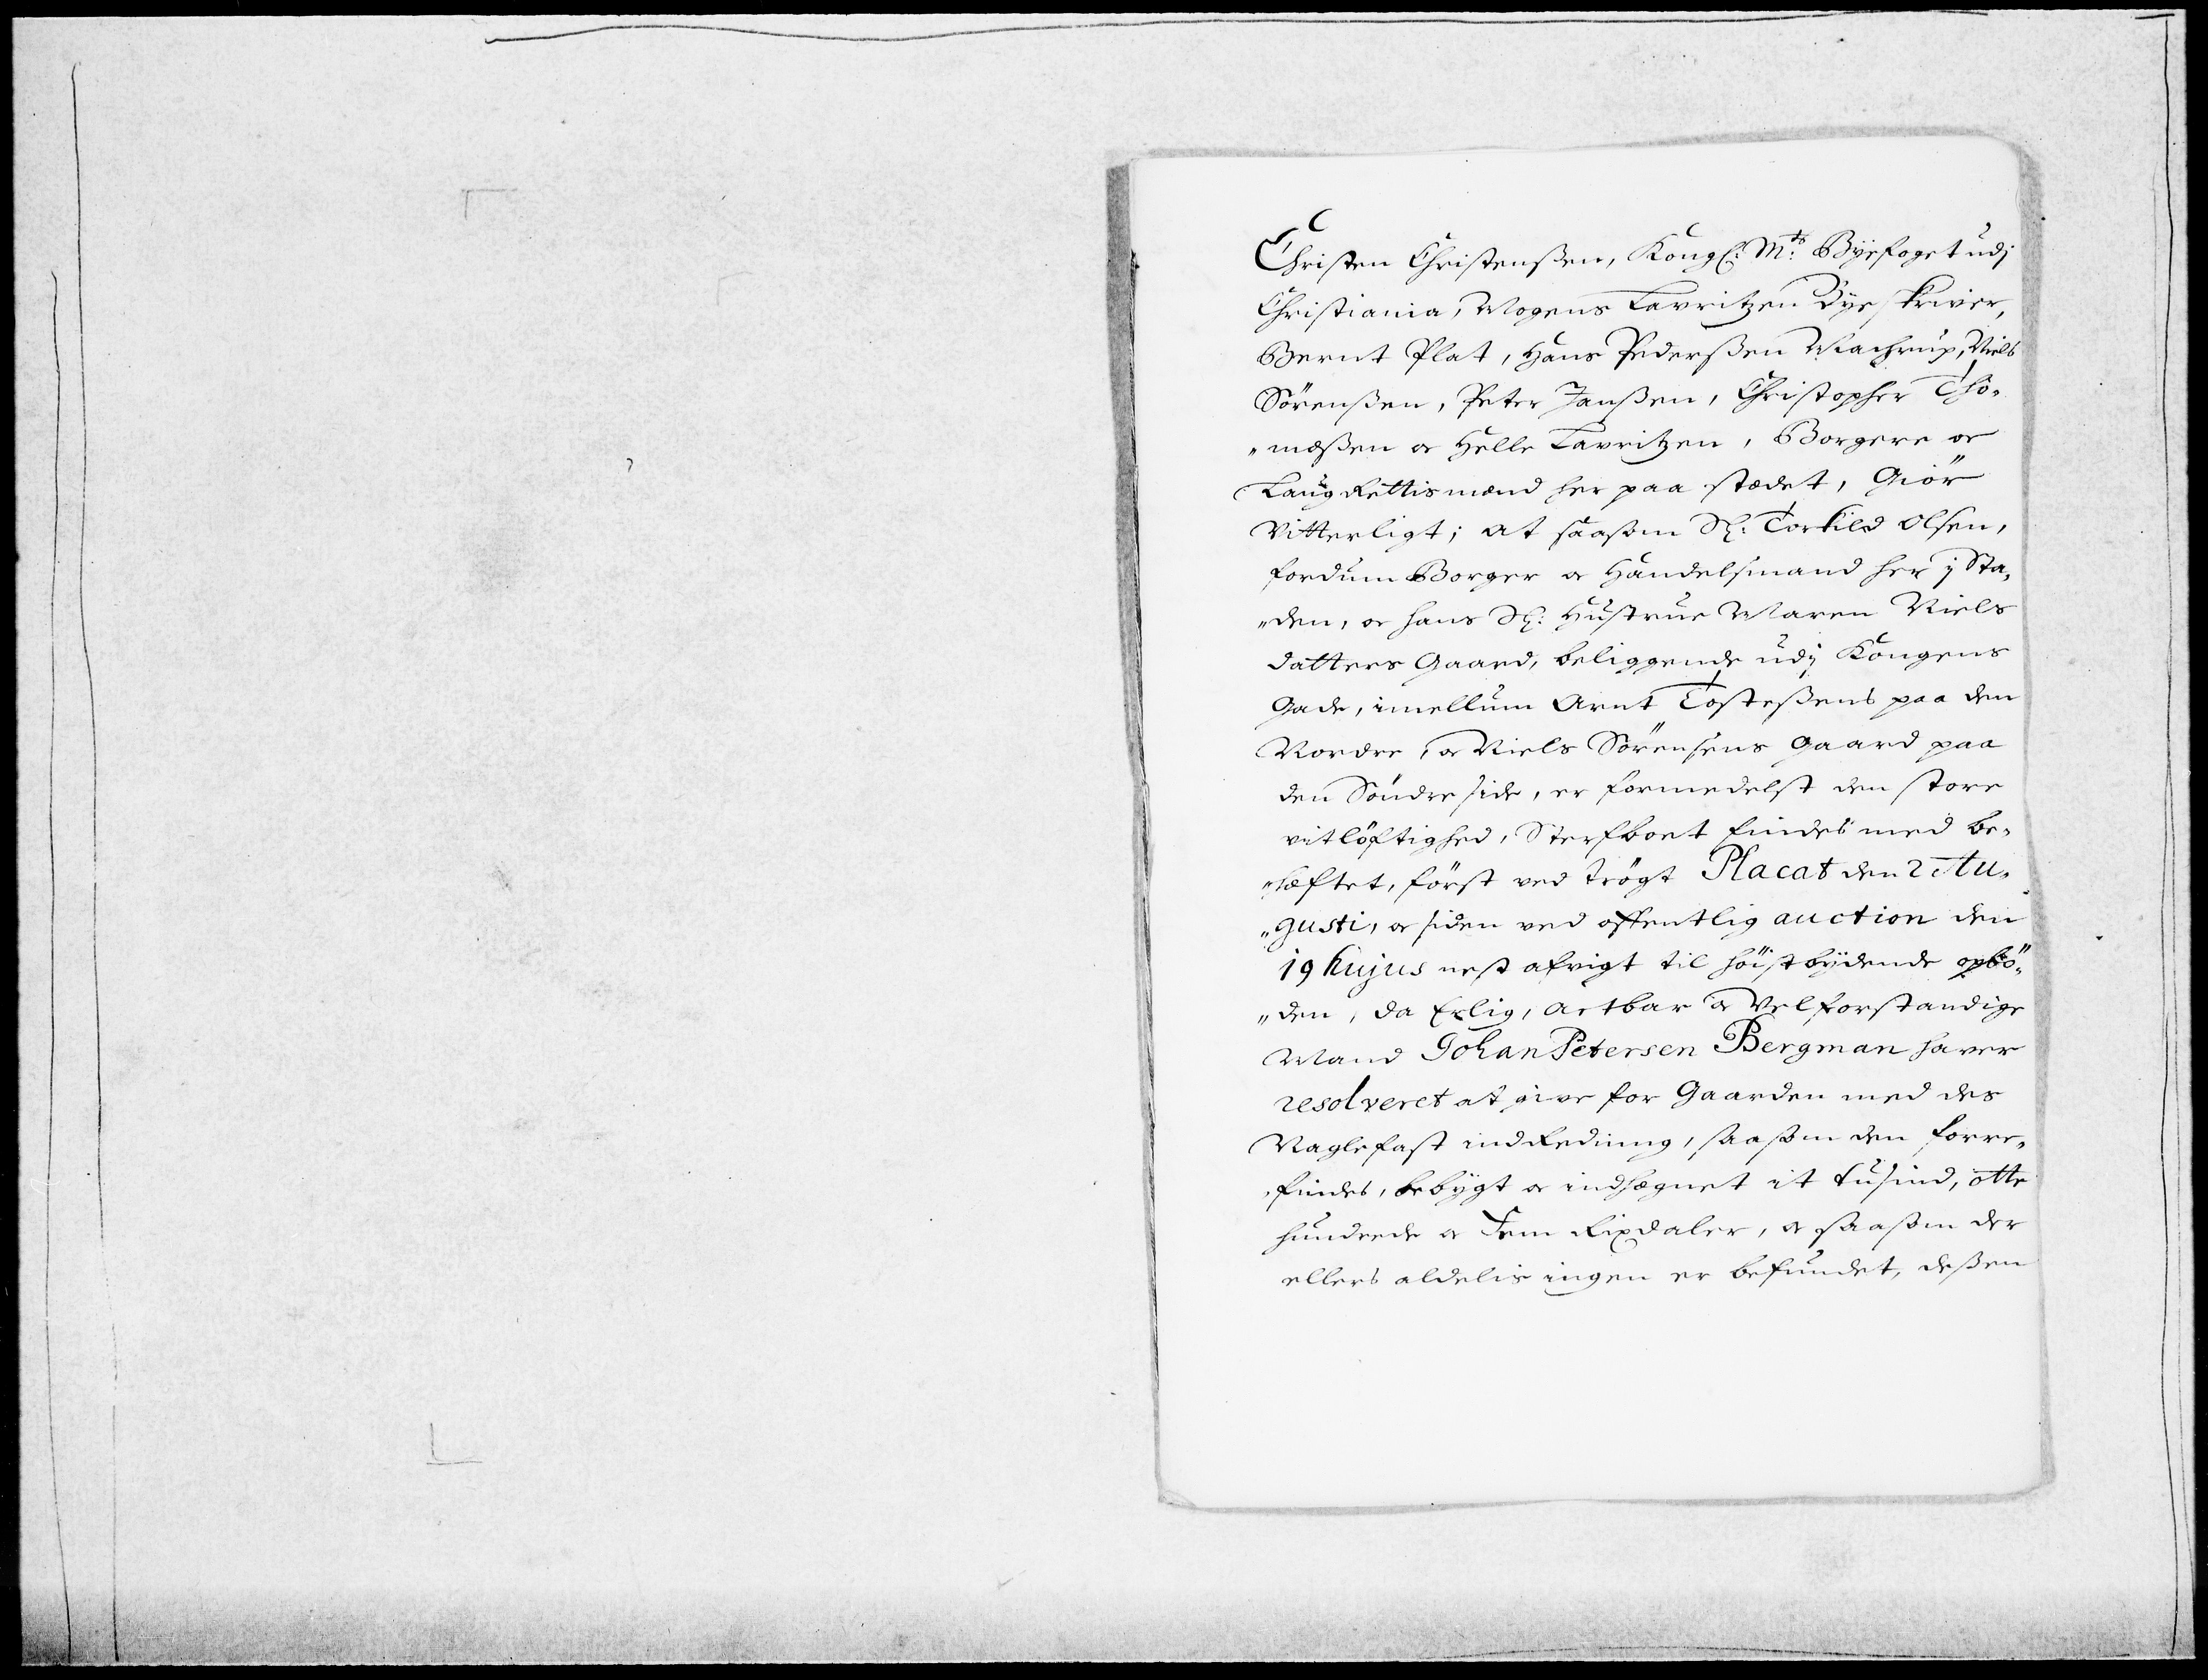 Christen Christenßen, Kongl: Mts: Byefoget udj
Christiania, Mogens Lavritzen Bye skriver,
Bernt Plat, Hans Pederßen Machrup, Niels
Sörenßen, Peter Janßen, Christopher Tho„
„meßen oc Helle Lavritzen, Borgere oc
Laug Rettismænd her paa stædet, Giör
Vitterligt; at saasom Sl: Torkild Olsen,
fordum Borger oc Handelsmand her j Sta„
„den, oc hans Sl: Hustrue Maren Niels
datters Gaard, beliggende udj Kongens
Gade, imellum Arnt Tosteßens paa den
Nordre, oc Niels Sörensens gaard paa
den Söndre side, er formedelst den store
vitlöftighed, Sterfboet findes med be„
„hæftet, först ved trögt Placat den 2 Au„
„gusti, oc siden ved offentlig auction den
19 hujus nest afvigt til höistbydende opbö„
„den, da Erlig, Actbar oc Velforstandige
Mand Johan Petersen Bergman haver
resolveret at give for Gaarden med des
Naglefast indRedning, saasom den forre„
„findes, bebygt oc indhægnet it tusind, otte
hundrede oc Fem Rixdaler, oc saasom der
ellers aldelis ingen er befundet, deßen